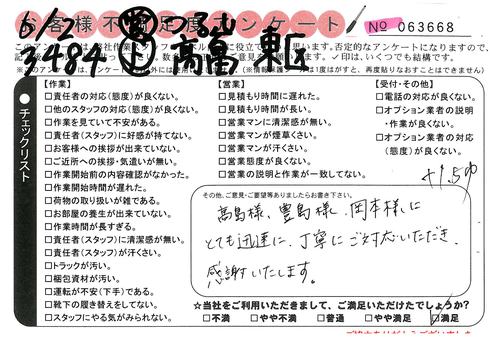 お客様不満足度アンケート
№ 063668
6/2
3484
つるみ
高畠
東区
チェックリスト
【作業】
□責任者の対応(態度)が良くない。
□他のスタッフの対応(態度)が良くない。
□作業を見ていて不安がある。
□責任者(スタッフ)に好感が持てない。
□お客様への挨拶が出来ていない。
□ご近所への挨拶・気遣いが無い。
□作業開始前の内容確認がなかった。
□作業開始時間が遅れた。
□荷物の取り扱いが雑である。
□お部屋の養生が出来ていない。
□作業時間が長すぎる。
□責任者(スタッフ)に清潔感が無い。
□責任者(スタッフ)が汗くさい。
□トラックが汚い。
□梱包資材が汚い。
□運転が不安(下手)である。
□靴下の履き替えをしてない。
□スタッフにやる気がみられない。
【営業】
□見積もり時間に遅れた。
□見積もり時間が長い。
□営業マンに清潔感が無い。
□営業マンが煙草くさい。
□営業マンが汗くさい。
□営業態度が良くない。
□営業の説明と作業が一致してない。
【受付・その他】
□電話の対応が良くない。
□オプション業者の説明
・作業が良くない。
□オプション業者の対応
(態度)が良くない。
その他、ご意見・ご要望等ありましたらお書き下さい。
高島様、豊島様、岡本様に
とても迅速に、丁寧にご対応いただき、
感謝いたします。
☆当社をご利用いただきまして、ご満足いただけたでしょうか?
□不満 □やや不満 □普通 □やや満足 ☑満足